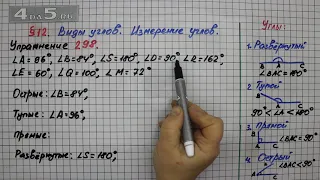 4da5.RU
§12. Виды углов. Измерение углов.
Упражнение 298.
∠A=96°, ∠B=84°, ∠S=180°, ∠D=90°, ∠R=162°,
∠E=60°, ∠Q=100°, ∠M=72°
Острые: ∠B=84°,
Тупые: ∠A=96°,
Прямые:
Развёрнутые: ∠S=180°,
Углы:
1. Развёрнутый
B A C
∠BAC=180°
2. Тупой
90°<∠A<180°
3. Прямой
∠BAC=90°
4. Острый